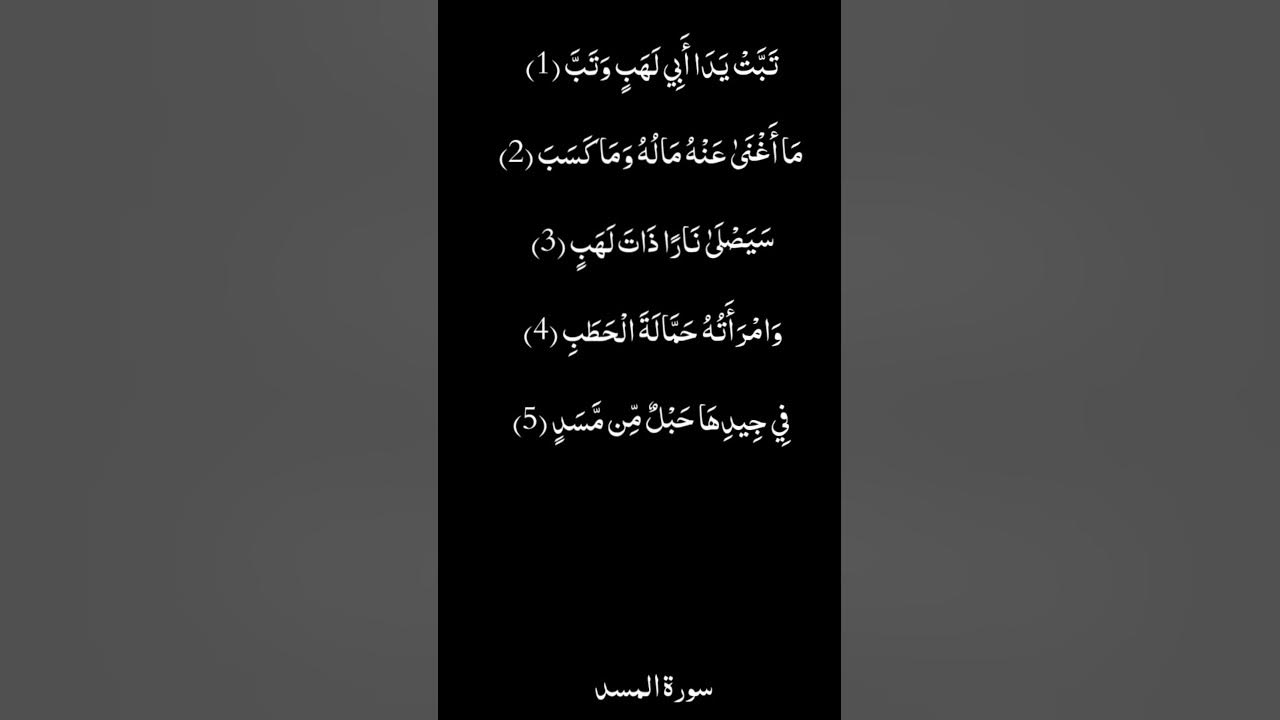 تَبَّتْ يَدَا أَبِي لَهَبٍ وَتَبَّ (1)
مَا أَغْنَىٰ عَنْهُ مَالُهُ وَمَا كَسَبَ (2)
سَيَصْلَىٰ نَارًا ذَاتَ لَهَبٍ (3)
وَامْرَأَتُهُ حَمَّالَةَ الْحَطَبِ (4)
فِي جِيدِهَا حَبْلٌ مِّن مَّسَدٍ (5)
سورة المسد